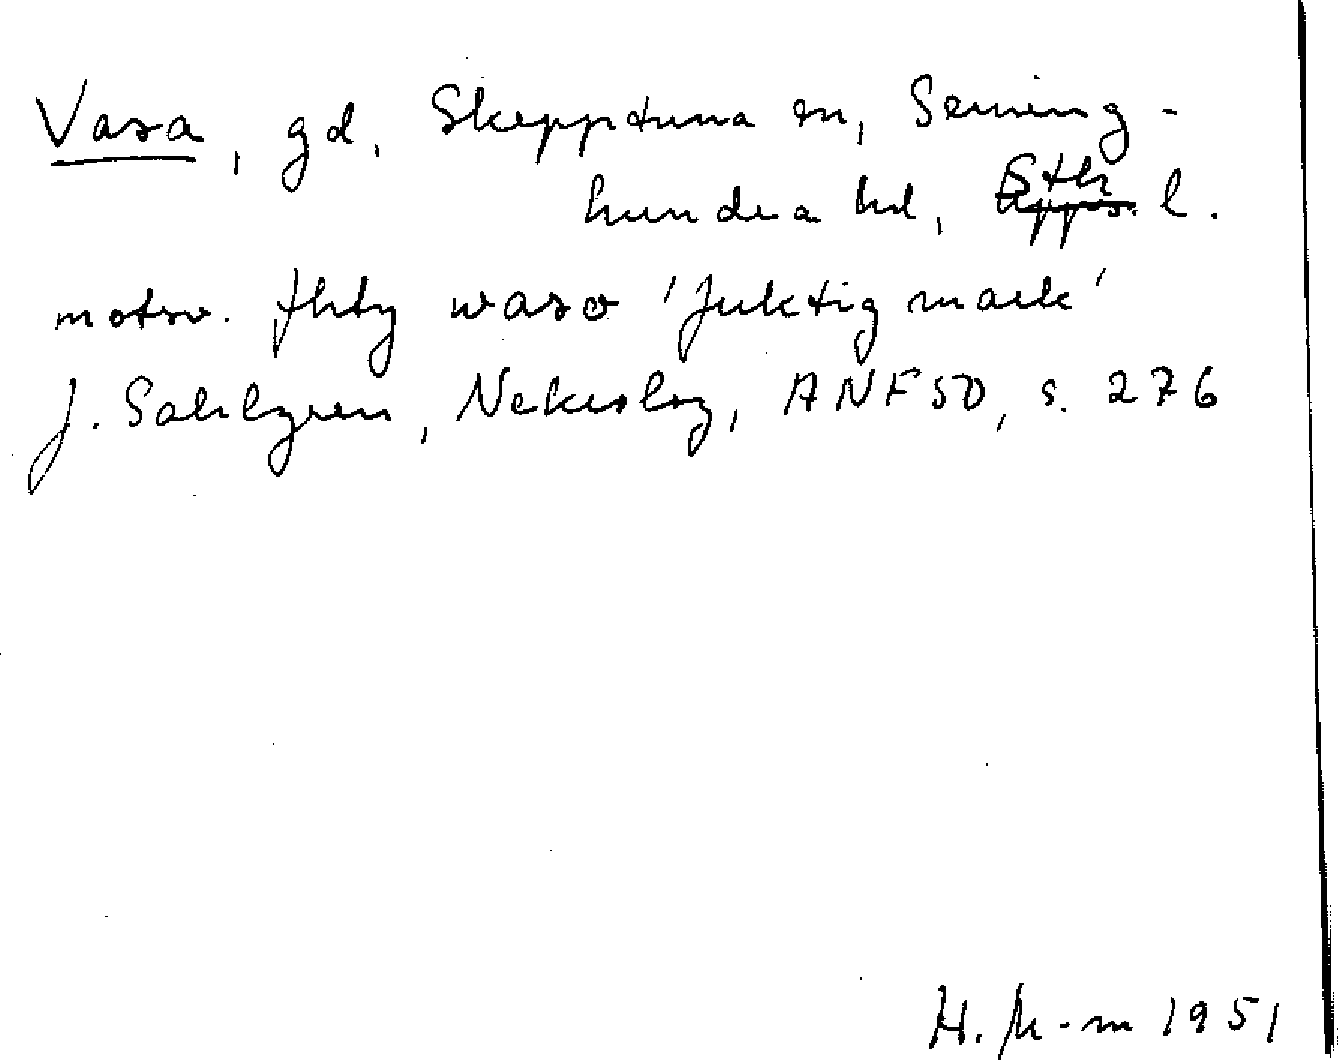 Vasa, gd, Skepptuna sn, Seming-
hundra hd, Sth l.
motsv. fhty waso 'fuktig mark'
J. Sahlgren, Nekrolog, ANF 50, s. 276
H. M-m 1951